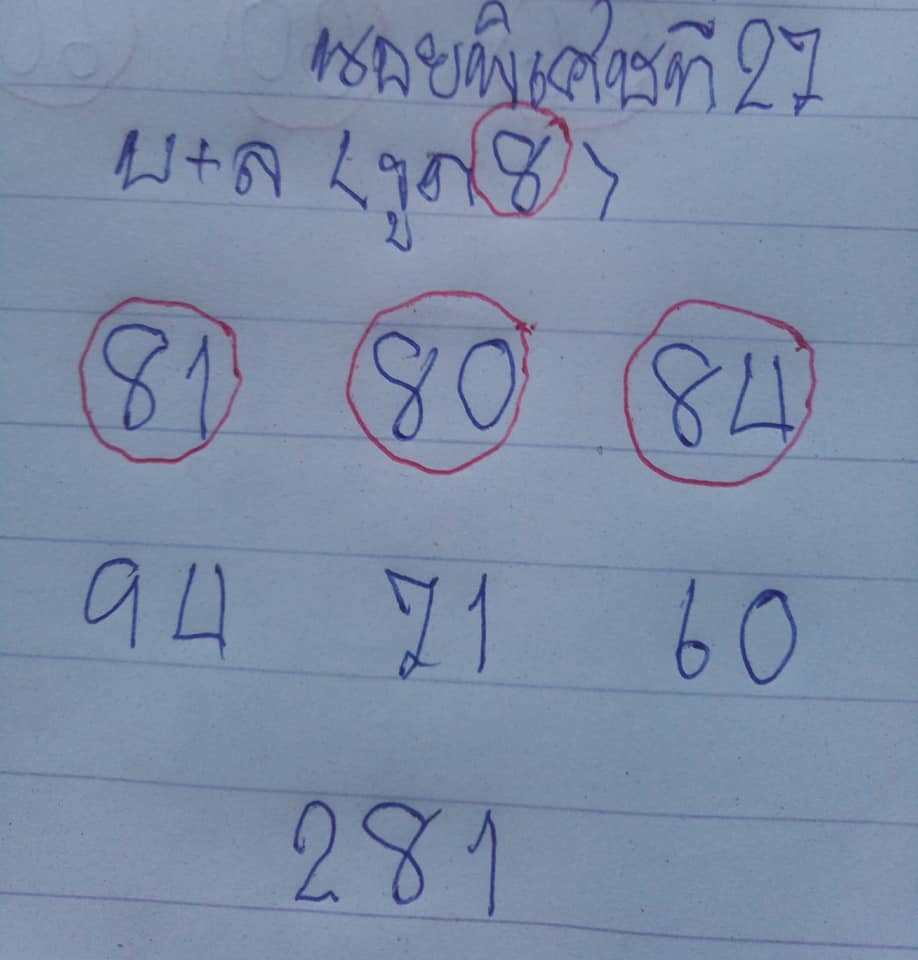 หอยพิเศษที่ 27
บ+ล <รูด 8>
81 80 84
94 71 60
281